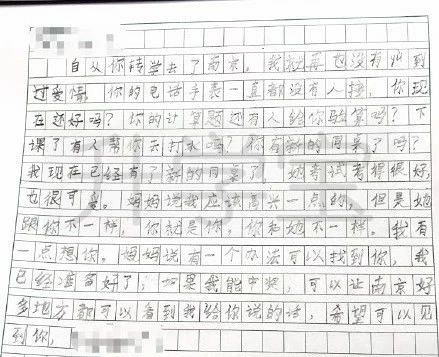 自从你转学去了南京。我就再也没有收到
过爱情。你的电话手表一直都没有人接，你现
在还好吗？你的计算题还有人给你验算吗？下
课了有人帮你去打水吗？你有新的同桌了吗？
我现在已经有了新的同桌了，她考试考得很好，
也很可爱。妈妈说我应该高兴一点的，但是她
跟你不一样，你就是你，你和她不一样。我有
一点想你。妈妈说有一个办法可以找到你，我
已经准备好了，如果我能中奖，可以让南京好
多地方都可以看到我给你说的话，希望可以见
到你，